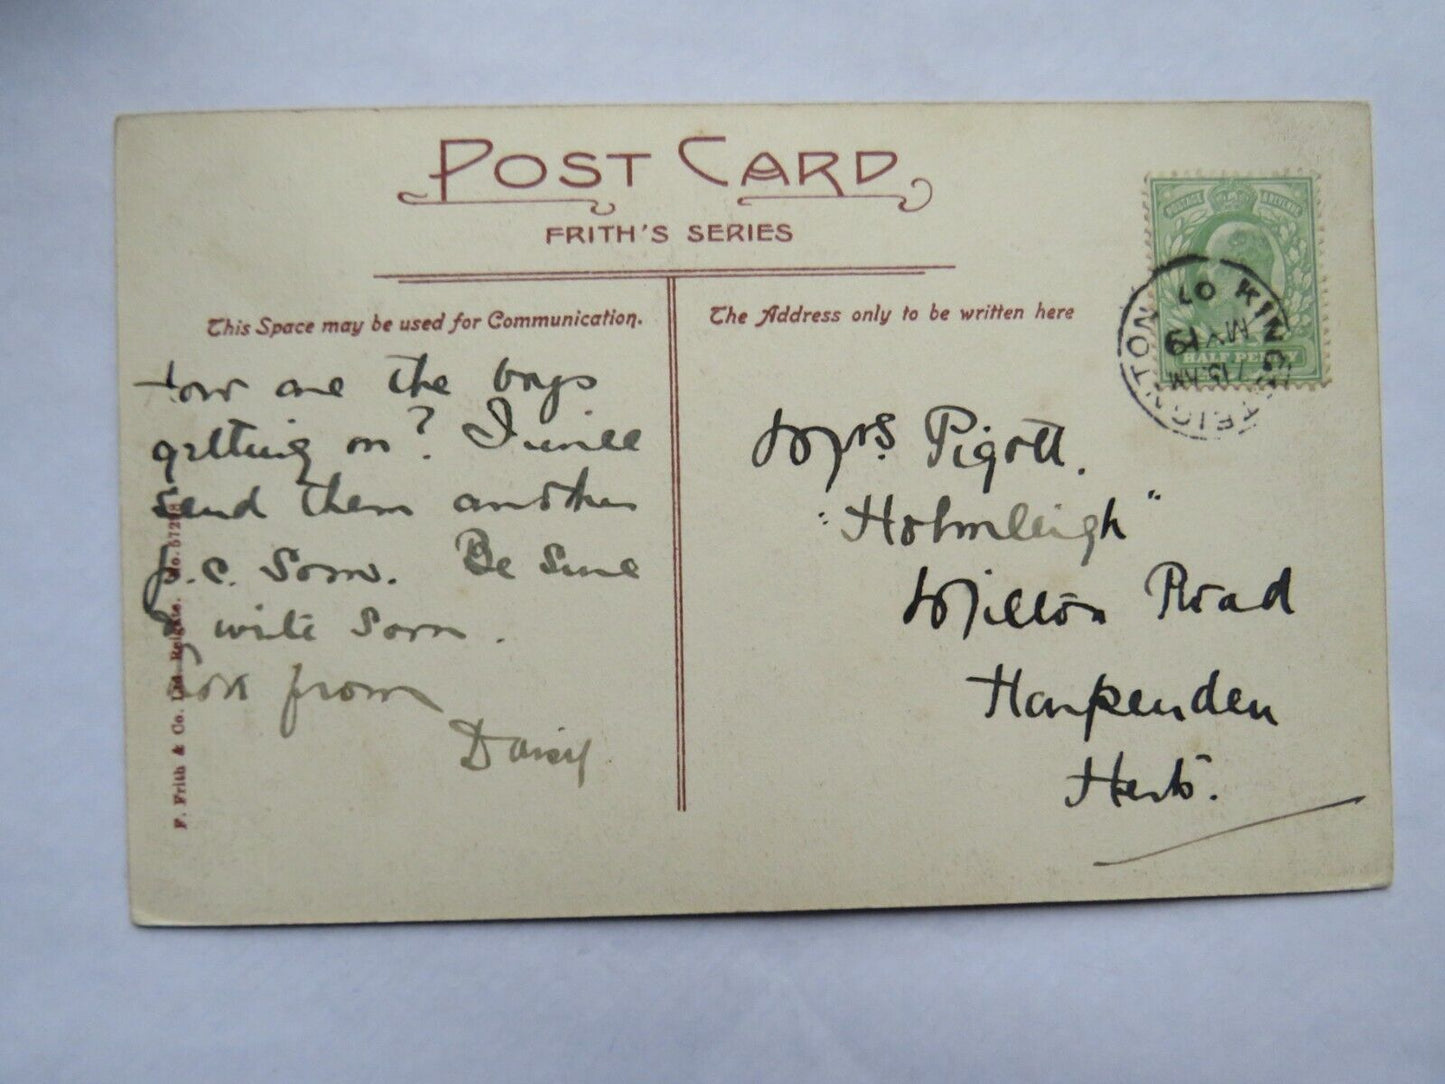 POST CARD
FRITH'S SERIES
This Space may be used for Communication.
How are the boys
getting on? I will
send them another
p.c. soon. Be sure
& write soon.
from
Daisy
F. Frith & Co. Ltd. Reigate. No. 57298
The Address only to be written here
POSTAGE & REVENUE
HALF PENNY
KINGSTEIGNTON
7.15 AM
MY 19
07
Mrs. Pigott.
"Holmleigh"
Milton Road
Harpenden
Herts.